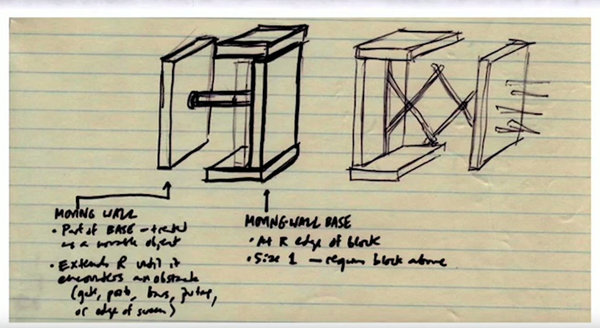 MOVING WALL
• Part of BASE – treated
as a movable object
• Extends R until it
encounters an obstacle
(gate,
or edge of screen)
MOVING-WALL BASE
• At R edge of block
• Size 1 — requires block above